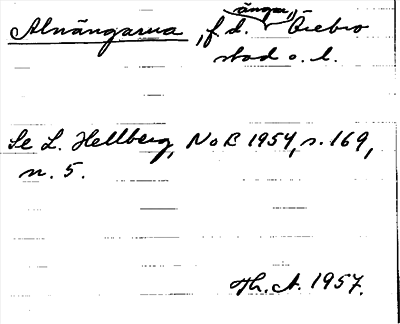 Alnängarna, f.d. ängar, Örebro
stad o. l.
Se L. Hellberg, NoB 1954, s. 169,
n. 5.
Th. A. 1957.